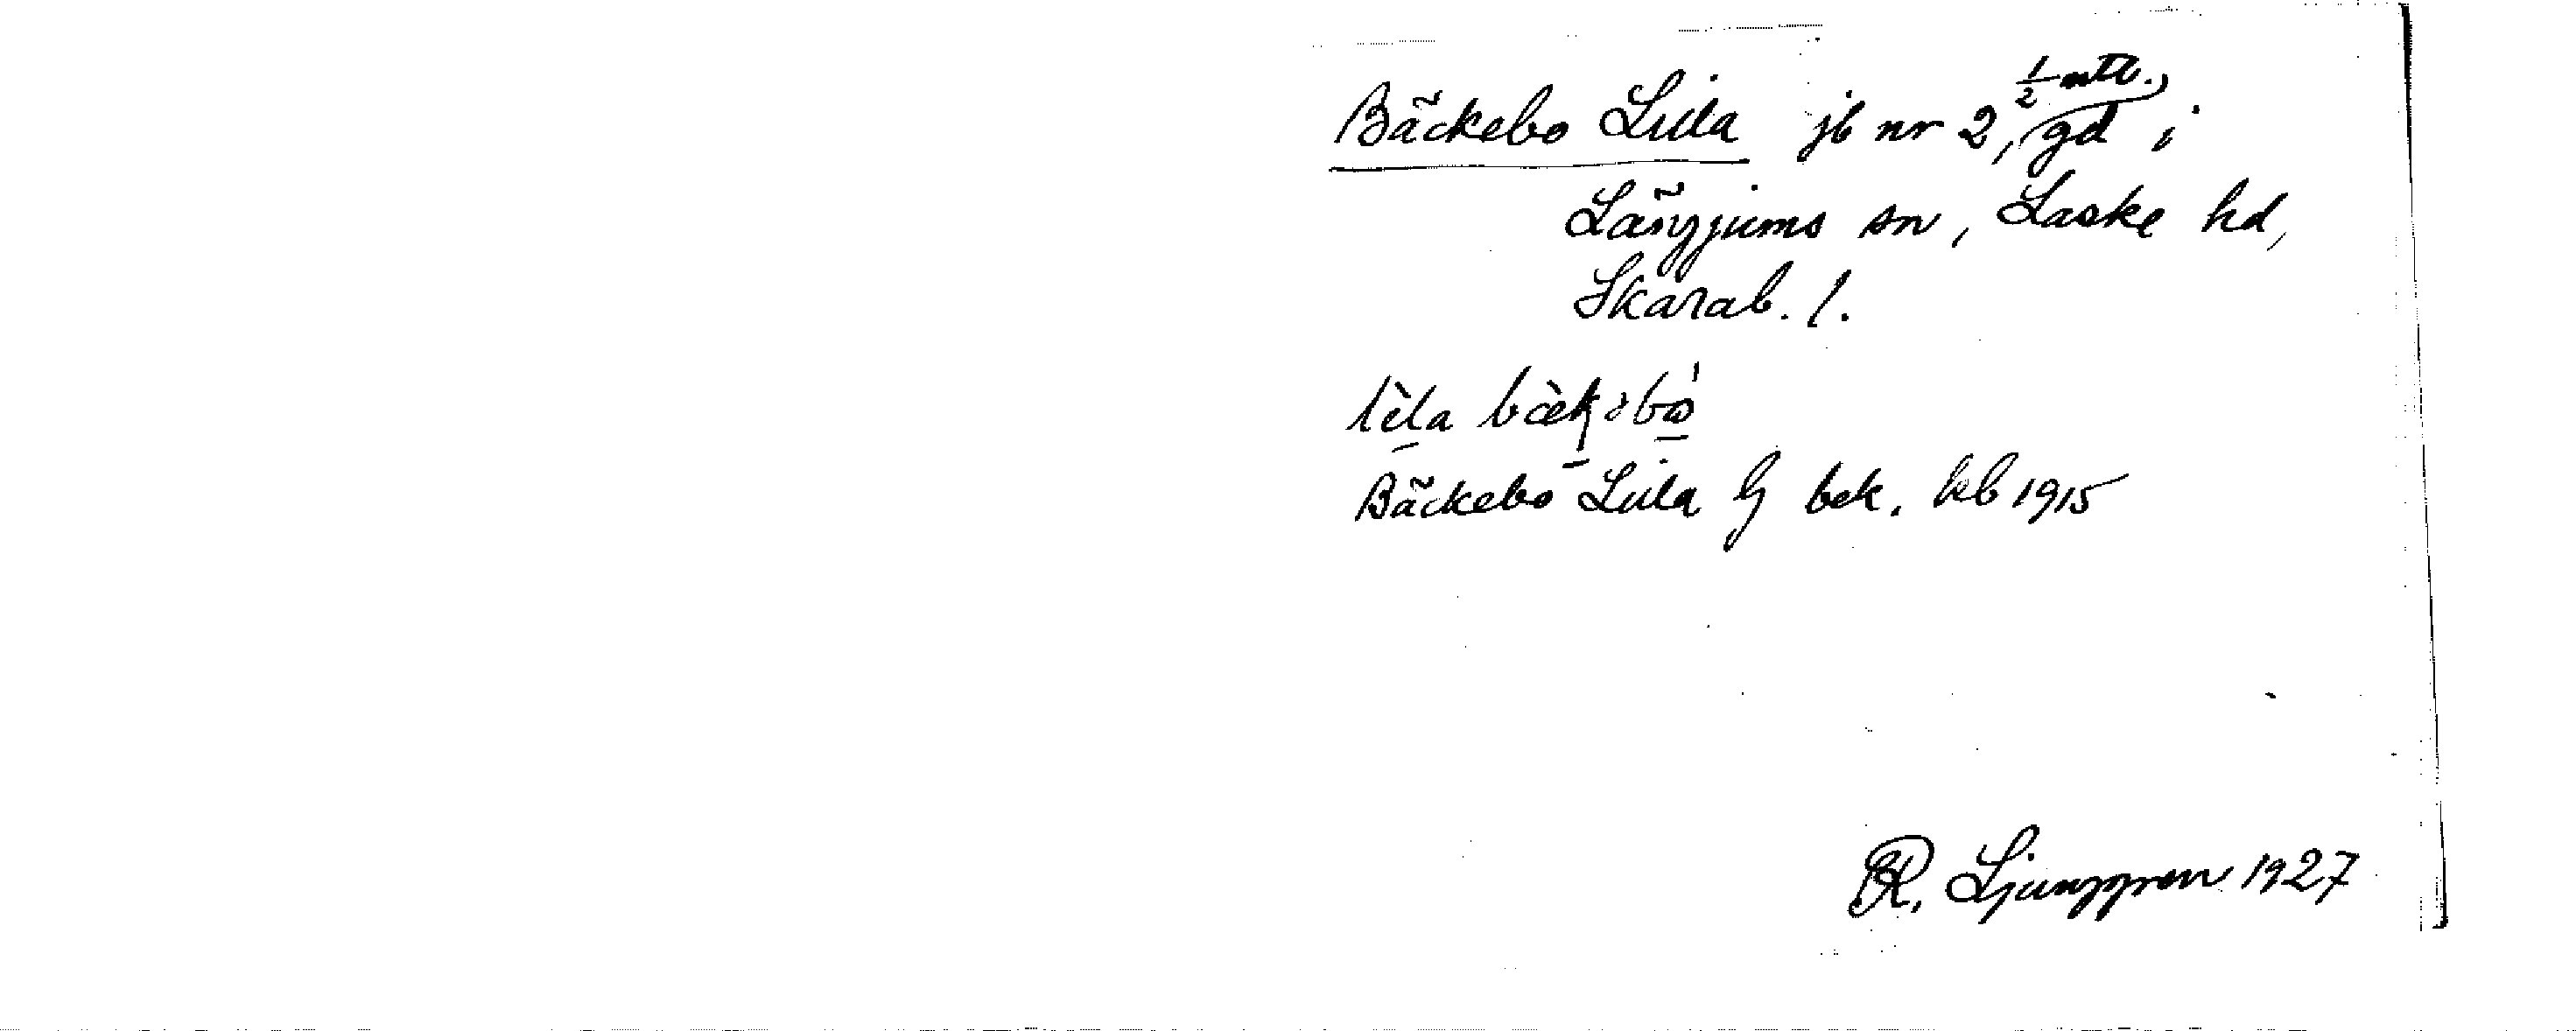 Bäckebo Lilla jb nr 2, ½ mtl., gd i
Längjums sn, Laske hd,
Skarab. l.
lèla bæ̀kəbo
Bäckebo Lilla bek. kb 1915
R. Ljunggren 1927